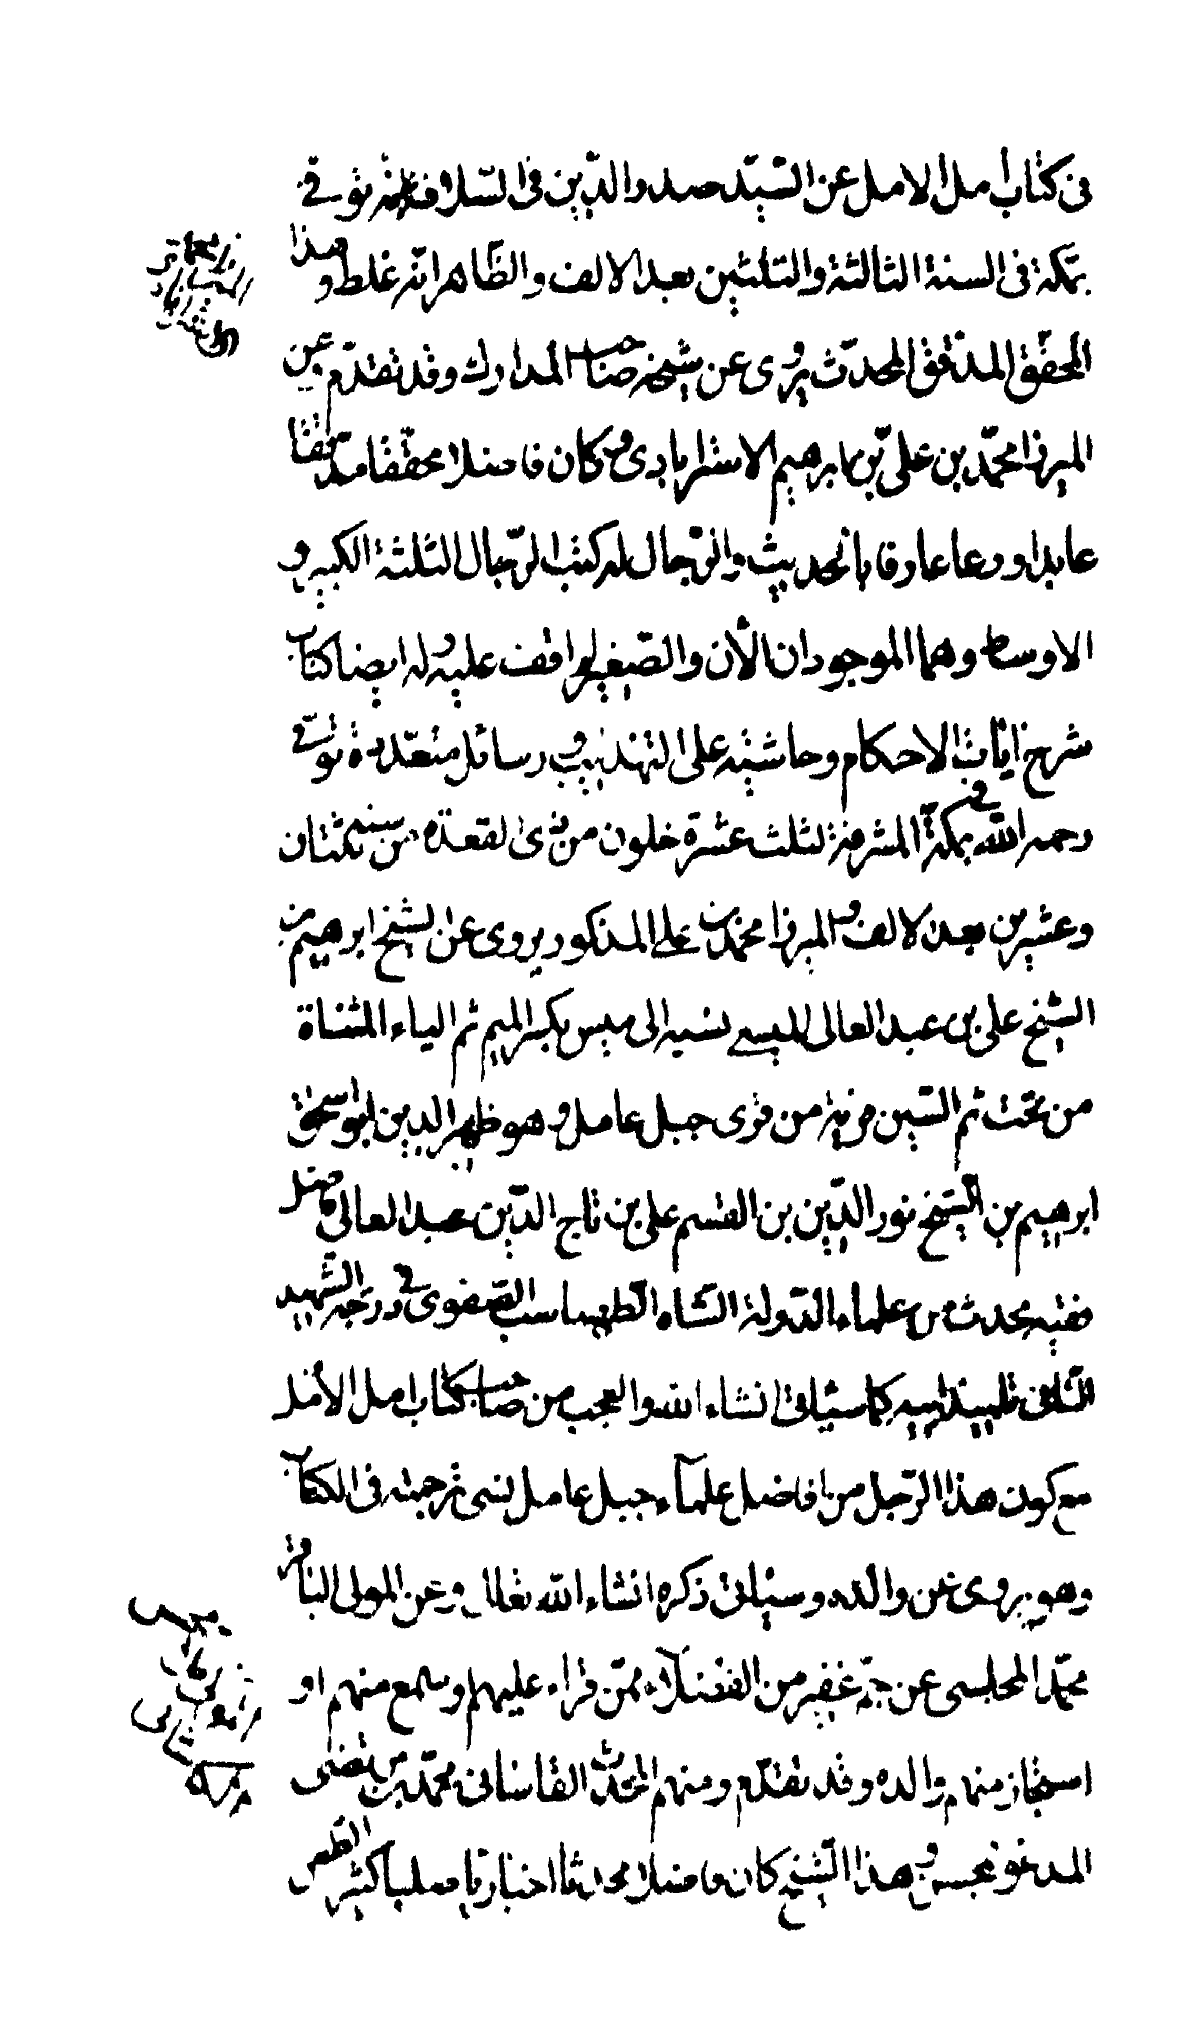 في كتاب امل الامل عن السيد صدر الدين في السلافة انه توفي
بمكة في السنة الثالثة والثلثين بعد الالف والظاهر انه غلط وهذا
المحقق المدقق المحدث يروى عن شيخه صاحب المدارك وقد تقدم عن
الميرزا محمد بن على بن ابرهيم الاسترابادى وكان فاضلا محققا مدققا
عابدا ورعا عارفا بالحديث والرجال له كتب الرجال الثلثة الكبير و
الاوسط وهما الموجودان الآن والصغير لم اقف عليه وله ايضا كتاب
شرح ايات الاحكام وحاشية على التهذيب و رسائل متعددة توفي
رحمه الله في بمكة المشرفة لثلث عشرة خلون من ذى القعدة من سنة ثمان
وعشرين بعد الالف والميرزا محمد بن على المذكور يروى عن الشيخ ابرهيم بن
الشيخ على بن عبد العالى الميسى نسبه الى ميس بكسر الميم ثم الياء المثناة
من تحت ثم السين قرية من قرى جبل عامل وهو ظهير الدين ابواسحق
ابرهيم بن الشيخ نور الدين بن القسم على بن تاج الدين عبد العالى فاضل
فقيه محدث من علماء الدولة الشاه الطهماسب الصفوى في درجة الشهيد
الثانى تلميذ ابيه كما سياتى انشاء الله والعجب من صاحب كتاب امل الآمل
مع كون هذا الرجل من افاضل علماء جبل عامل نسى ترجمته في الكتاب
وهو يروى عن والده وسياتى ذكره انشاء الله تعالى وعن المولى الباقر
محمد المجلسى عن جمّ غفير من الفضلاء ممن قراء عليهم وسمع منهم او
استجاز منهم والده وقد تقدم ومنهم المحدث القاسانى محمد بن مرتضى
المدعو بمحسن وهذا الشيخ كان فاضلا محدثا اخباريا صلبا كثير الطعن